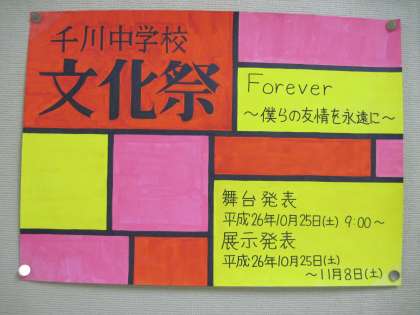 千川中学校
文化祭
Forever
～僕らの友情を永遠に～
舞台発表
平成26年10月25日(土) 9:00～
展示発表
平成26年10月25日(土)
～11月8日(土)